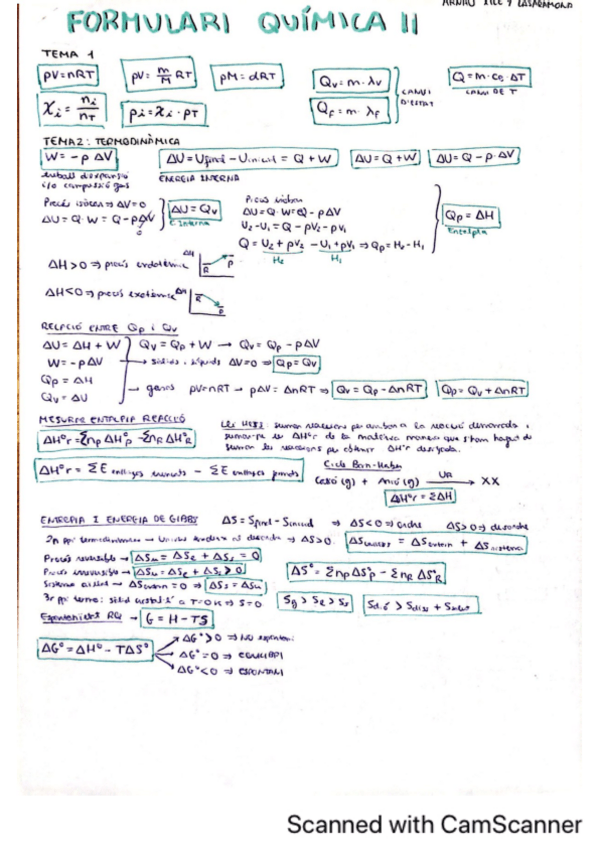 FORMULARI QUÍMICA II
TEMA 1
pV=nRT
pV = m/M RT
pM = dRT
Qv = m·λv
Qf = m·λf
CANVI D'ESTAT
Q = m·ce·ΔT
CANVI DE T
Xi = ni/nT
pi = Xi·pT
TEMA 2: TERMODINÀMICA
W = -p ΔV
ΔU = Ufinal - Uinicial = Q + W
ΔU = Q + W
ΔU = Q - p·ΔV
treball d'expansió
i/o compressió gas
ENERGIA INTERNA
Procés isòcor ⇒ ΔV=0
ΔU = Q·W = Q - pΔV
0
ΔU = Qv
E. Interna
Procés isòbar
ΔU = Q·W = Q - pΔV
U2 - U1 = Q - pV2 - pV1
Q = U2 + pV2 - U1 + pV1 ⇒ Qp = H2 - H1
H2 H1
Qp = ΔH
Entalpia
ΔH > 0 ⇒ procés endotèrmic
ΔH R P
ΔH < 0 ⇒ procés exotèrmic
ΔH R P
RELACIÓ ENTRE Qp i Qv
ΔU = ΔH + W
Qv = Qp + W → Qv = Qp - pΔV
W = -pΔV
→ sòlids i líquids ΔV=0 ⇒ Qp = Qv
Qp = ΔH
Qv = ΔU
→ gasos pV=nRT → pΔV = ΔnRT ⇒ Qv = Qp - ΔnRT
Qp = Qv + ΔnRT
MESURES ENTALPIA REACCIÓ
ΔH°r = Σnp ΔH°p - ΣnR ΔH°R
LLEI HESS: sumar reaccions per arribar a la reacció demanada i
sumar-ne les ΔH°r de la mateixa manera que s'han hagut de
sumar les reaccions per obtenir ΔH°r desitjada.
ΔH°r = ΣE enllaços trencats - ΣE enllaços formats
Cicle Born-Haber
Catió (g) + Anió (g) UR → XX
ΔH°r = ΣΔH
ENTROPIA I ENERGIA DE GIBBS
ΔS = Sfinal - Sinicial ⇒ ΔS<0 ⇒ ordre ΔS>0 ⇒ desordre
2n ppi termodinàmica → Univers tendeix al desordre ⇒ ΔS>0.
ΔSunivers = ΔSentorn + ΔSsistema
Procés reversible → ΔSu = ΔSe + ΔSs = 0
Procés irreversible → ΔSu = ΔSe + ΔSs > 0
Sistema aïllat → ΔSentorn = 0 ⇒ ΔSs = ΔSu
ΔS° = Σnp ΔS°p - ΣnR ΔS°R
3r ppi termo: sòlid cristal·lí a T=0K ⇒ S=0
Sg > Sl > Ss
Espontaneïtat RQ → G = H - TS
ΔG° = ΔH° - TΔS°
ΔG° > 0 ⇒ NO espontani
ΔG° = 0 ⇒ EQUILIBRI
ΔG° < 0 ⇒ ESPONTANI
Scanned with CamScanner